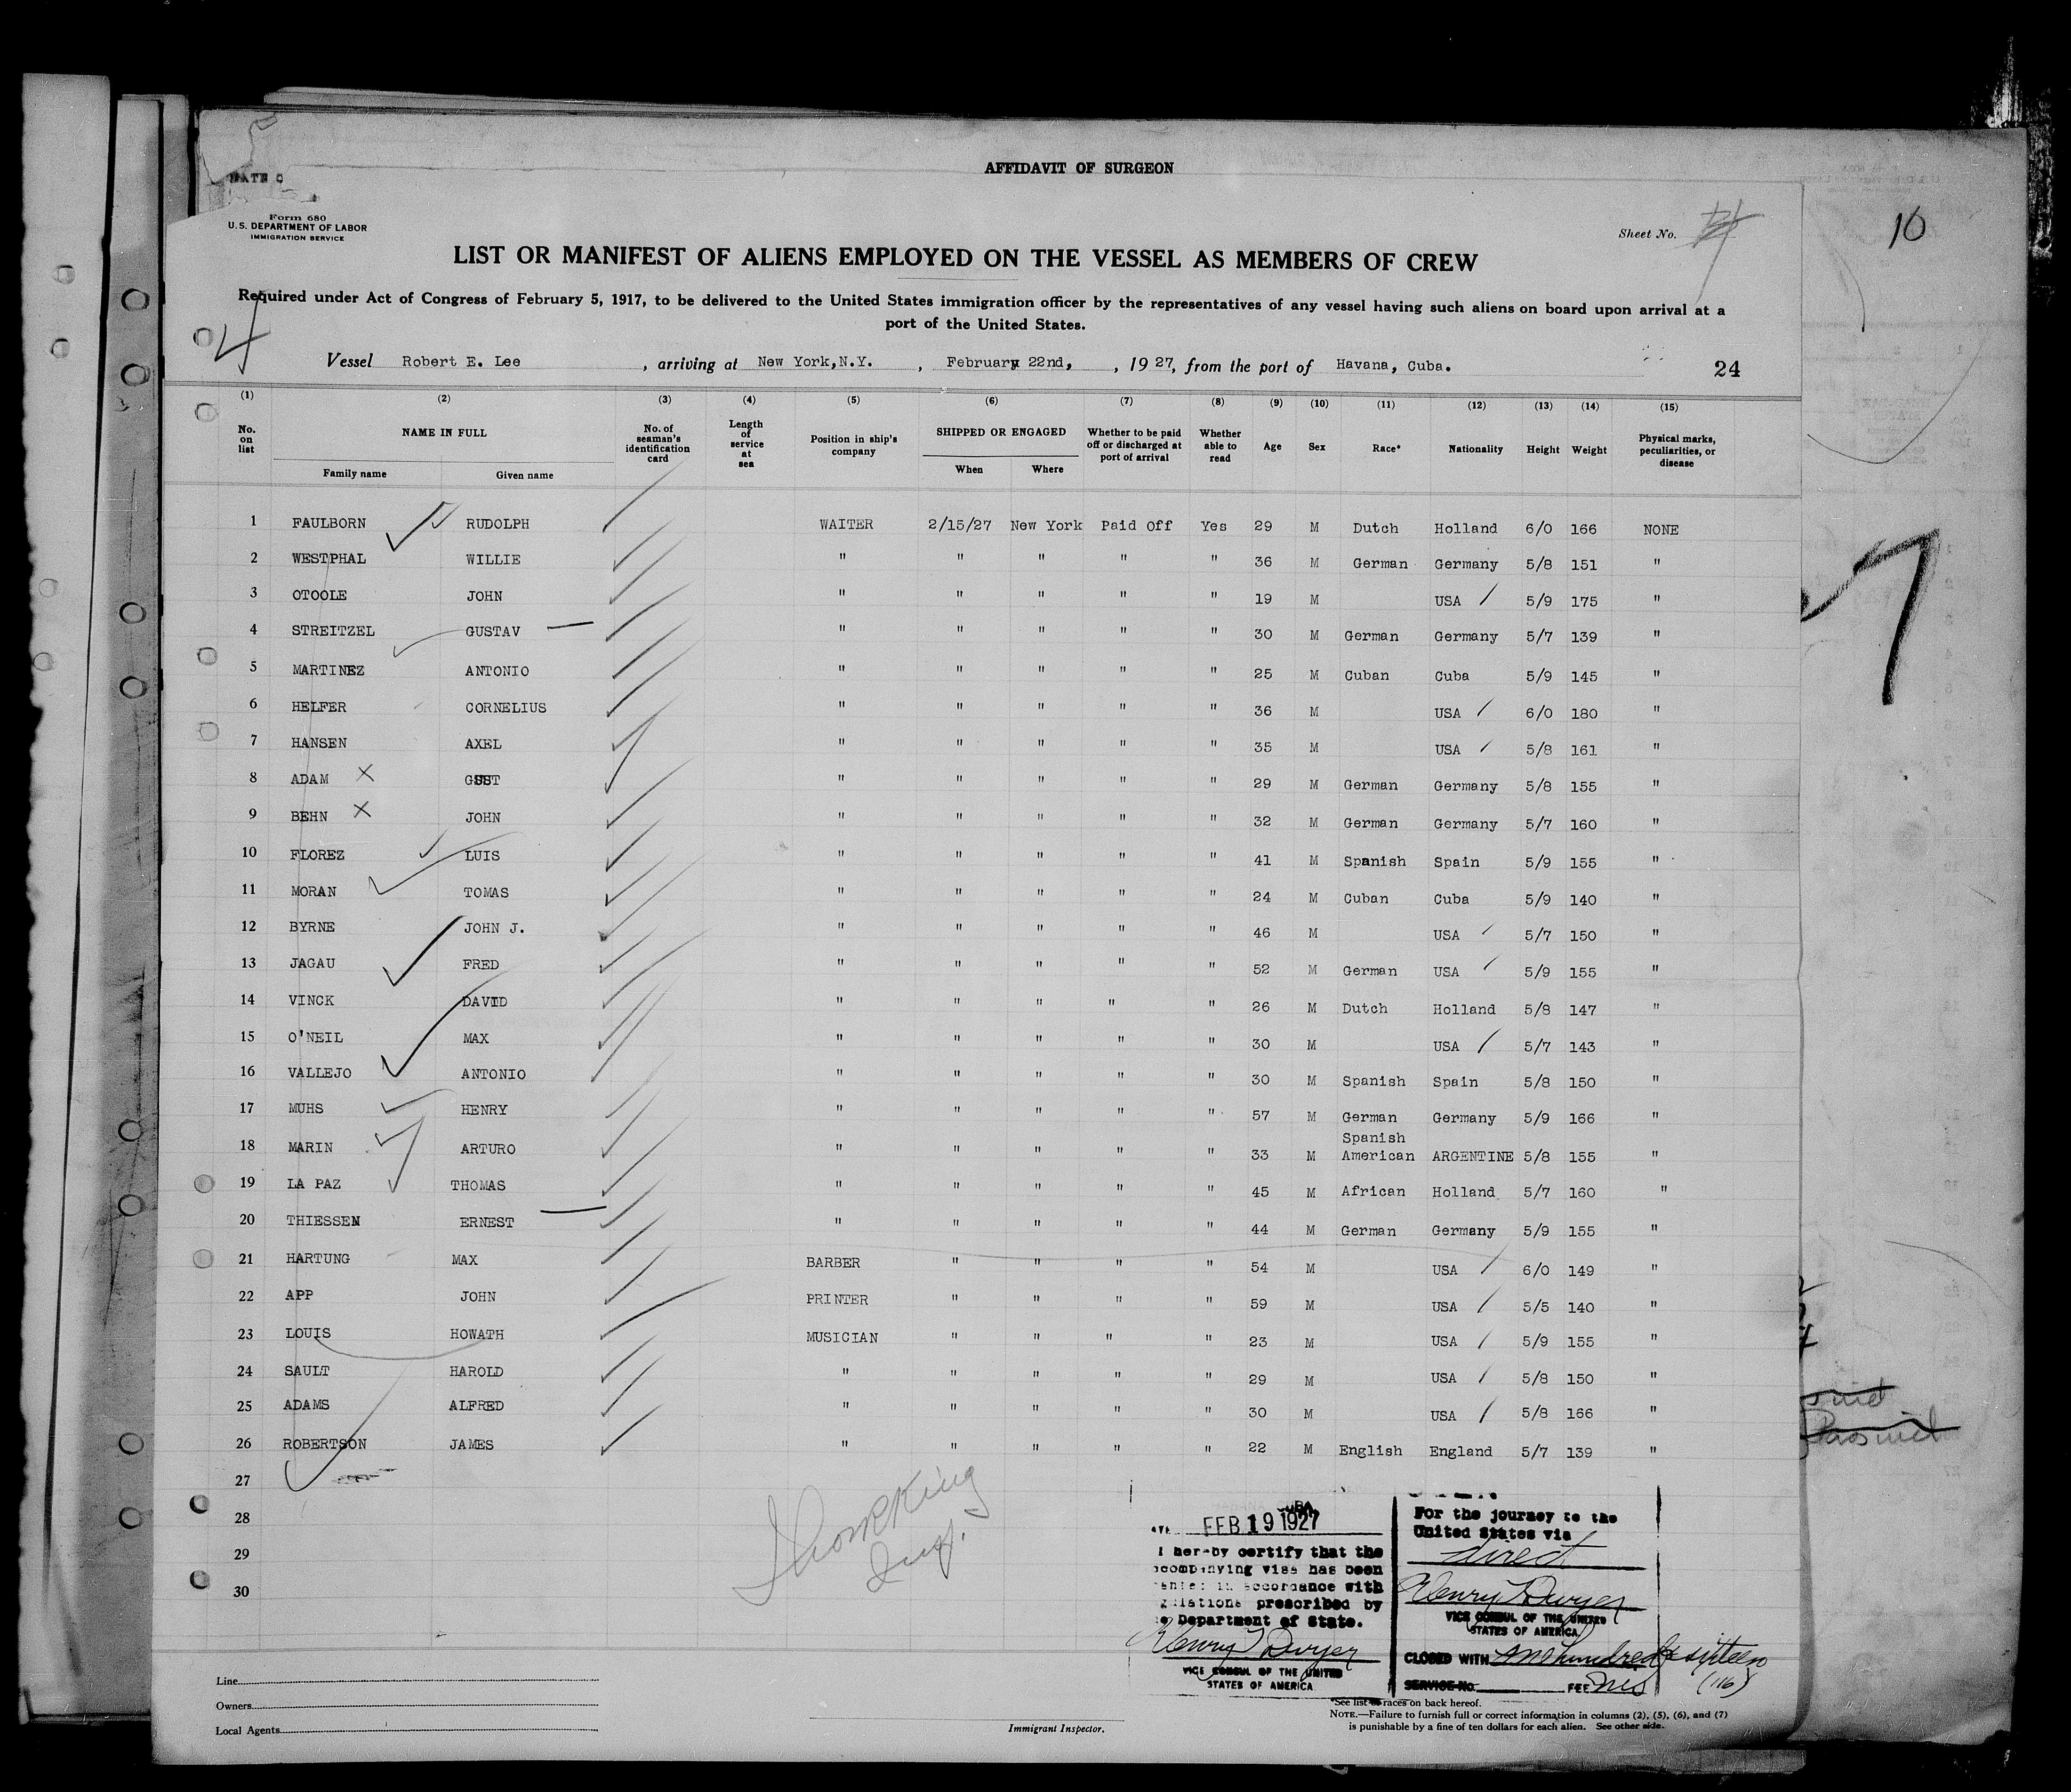 AFFIDAVIT OF SURGEON
10
Form 680
U.S. DEPARTMENT OF LABOR
IMMIGRATION SERVICE
Sheet No.
LIST OR MANIFEST OF ALIENS EMPLOYED ON THE VESSEL AS MEMBERS OF CREW
Required under Act of Congress of February 5, 1917, to be delivered to the United States immigration officer by the representatives of any vessel having such aliens on board upon arrival at a
port of the United States.
4
Vessel Robert E. Lee , arriving at New York,N.Y. , February 22nd, , 1927, from the port of Havana, Cuba. 24
(1) (2) (3) (4) (5) (6) (7) (8) (9) (10) (11) (12) (13) (14) (15)
No. on list NAME IN FULL Family name Given name No. of seaman's identification card Length of service at sea Position in ship's company SHIPPED OR ENGAGED When Where Whether to be paid off or discharged at port of arrival Whether able to read Age Sex Race* Nationality Height Weight Physical marks, peculiarities, or disease
1 FAULBORN RUDOLPH WAITER 2/15/27 New York Paid Off Yes 29 M Dutch Holland 6/0 166 NONE
2 WESTPHAL WILLIE " " " " " 36 M German Germany 5/8 151 "
3 OTOOLE JOHN " " " " " 19 M USA 5/9 175 "
4 STREITZEL GUSTAV " " " " " 30 M German Germany 5/7 139 "
5 MARTINEZ ANTONIO " " " " " 25 M Cuban Cuba 5/9 145 "
6 HELFER CORNELIUS " " " " " 36 M USA 6/0 180 "
7 HANSEN AXEL " " " " " 35 M USA 5/8 161 "
8 ADAM X GUST " " " " " 29 M German Germany 5/8 155 "
9 BEHN X JOHN " " " " " 32 M German Germany 5/7 160 "
10 FLOREZ LUIS " " " " " 41 M Spanish Spain 5/9 155 "
11 MORAN TOMAS " " " " " 24 M Cuban Cuba 5/9 140 "
12 BYRNE JOHN J. " " " " " 46 M USA 5/7 150 "
13 JAGAU FRED " " " " " 52 M German USA 5/9 155 "
14 VINCK DAVID " " " " " 26 M Dutch Holland 5/8 147 "
15 O'NEIL MAX " " " " " 30 M USA 5/7 143 "
16 VALLEJO ANTONIO " " " " " 30 M Spanish Spain 5/8 150 "
17 MUHS HENRY " " " " " 57 M German Germany 5/9 166 "
18 MARIN ARTURO " " " " " 33 M Spanish American ARGENTINE 5/8 155 "
19 LA PAZ THOMAS " " " " " 45 M African Holland 5/7 160 "
20 THIESSEN ERNEST " " " " " 44 M German Germany 5/9 155 "
21 HARTUNG MAX BARBER " " " " 54 M USA 6/0 149 "
22 APP JOHN PRINTER " " " " 59 M USA 5/5 140 "
23 LOUIS HOWATH MUSICIAN " " " " 23 M USA 5/9 155 "
24 SAULT HAROLD " " " " " 29 M USA 5/8 150 "
25 ADAMS ALFRED " " " " " 30 M USA 5/8 166 "
26 ROBERTSON JAMES " " " " " 22 M English England 5/7 139 "
27
28
29
30
FEB 19 1927
I hereby certify that the
accompanying visa has been
in accordance with
regulations prescribed by
Department of State.
Henry T Dwyer
VICE CONSUL OF THE UNITED
STATES OF AMERICA
For the journey to the
United States via
direct
Henry T Dwyer
VICE CONSUL OF THE UNITED
STATES OF AMERICA
CLOSED WITH one hundred & sixteen
SERVICE No. FEE (116)
Line
Owners
Local Agents
Immigrant Inspector.
*See list of races on back hereof.
NOTE.—Failure to furnish full or correct information in columns (2), (5), (6), and (7)
is punishable by a fine of ten dollars for each alien. See other side.